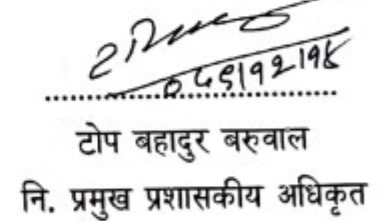 टोप बहादुर बरुवाल
नि. प्रमुख प्रशासकीय अधिकृत